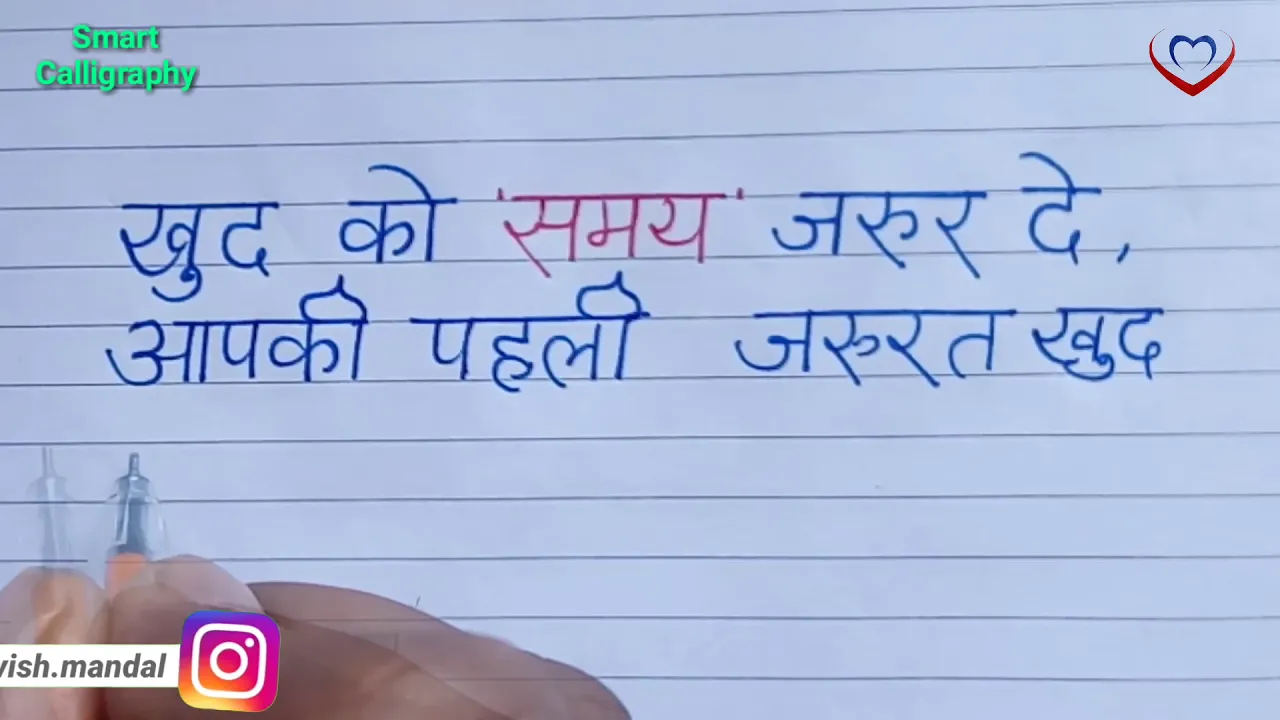 Smart
Calligraphy
खुद को 'समय' जरुर दे,
आपकी पहली जरुरत खुद
vish.mandal